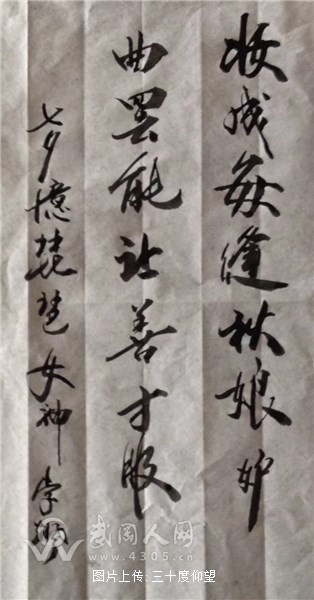 妆成每缝秋娘妒
曲罢能让善才服
七夕憶琵琶女神
武冈人网
www.4305.cn
图片上传:三十度仰望